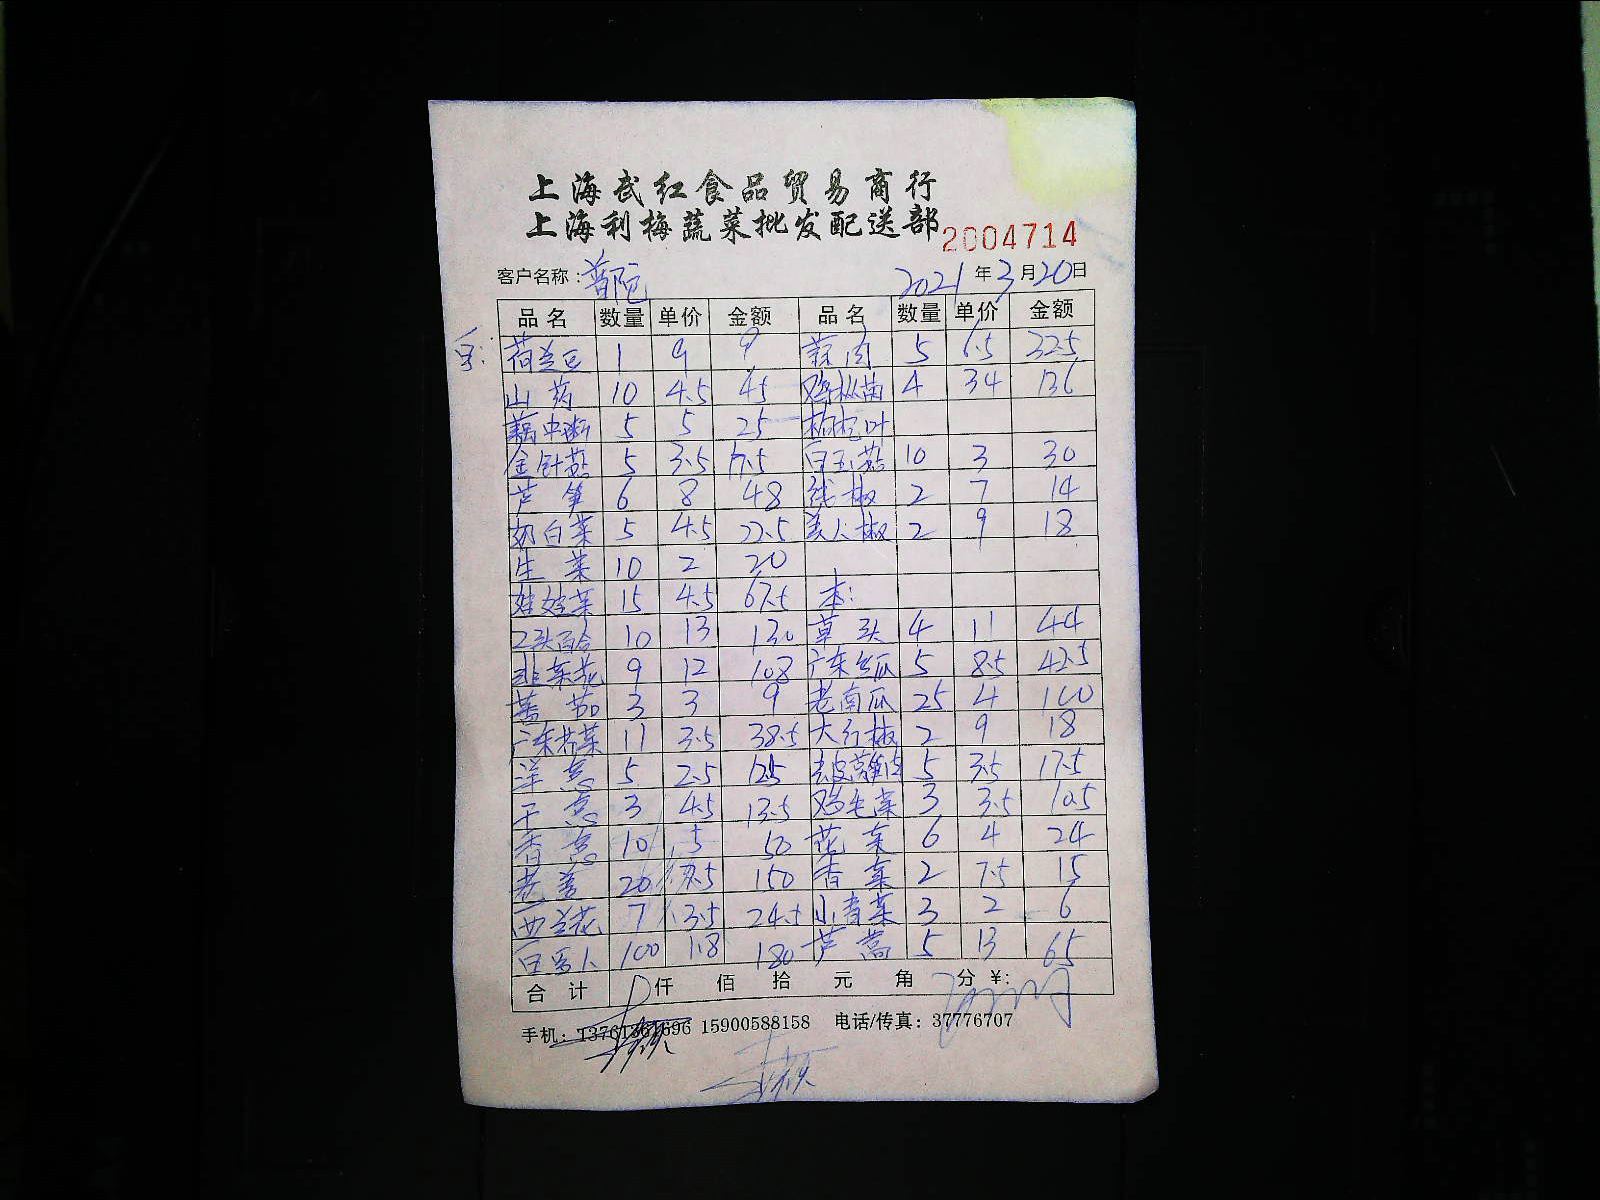 上海武红食品贸易商行
上海利梅蔬菜批发配送部 2004714
客户名称：普陀 2021年3月20日
品名 数量 单价 金额 品名 数量 单价 金额
荷兰豆 1 9 9 蒜肉 5 6.5 32.5
山药 10 4.5 45 鸡枞菌 4 34 136
藕中断 5 5 25 枸杞叶
金针菇 5 3.5 17.5 白玉菇 10 3 30
芦笋 6 8 48 线椒 2 7 14
奶白菜 5 4.5 22.5 美人椒 2 9 18
生菜 10 2 20
娃娃菜 15 4.5 67.5 本：
2头百合 10 13 130 草头 4 11 44
韭菜花 9 12 108 广东丝瓜 5 8.5 42.5
蕃茄 3 3 9 老南瓜 25 4 100
广东芥菜 11 3.5 38.5 大红椒 2 9 18
洋葱 5 2.5 12.5 去皮莴 5 3.5 17.5
干葱 3 4.5 13.5 鸡毛菜 3 3.5 10.5
香葱 10 5 50 花菜 6 4 24
老姜 20 7.5 150 香菜 2 7.5 15
西兰花 7 3.5 24.5 小青菜 3 2 6
白萝卜 100 1.8 180 芦蒿 5 13 65
合计 仟 佰 拾 元 角 分 ¥：
手机： 15900588158 电话/传真：37776707